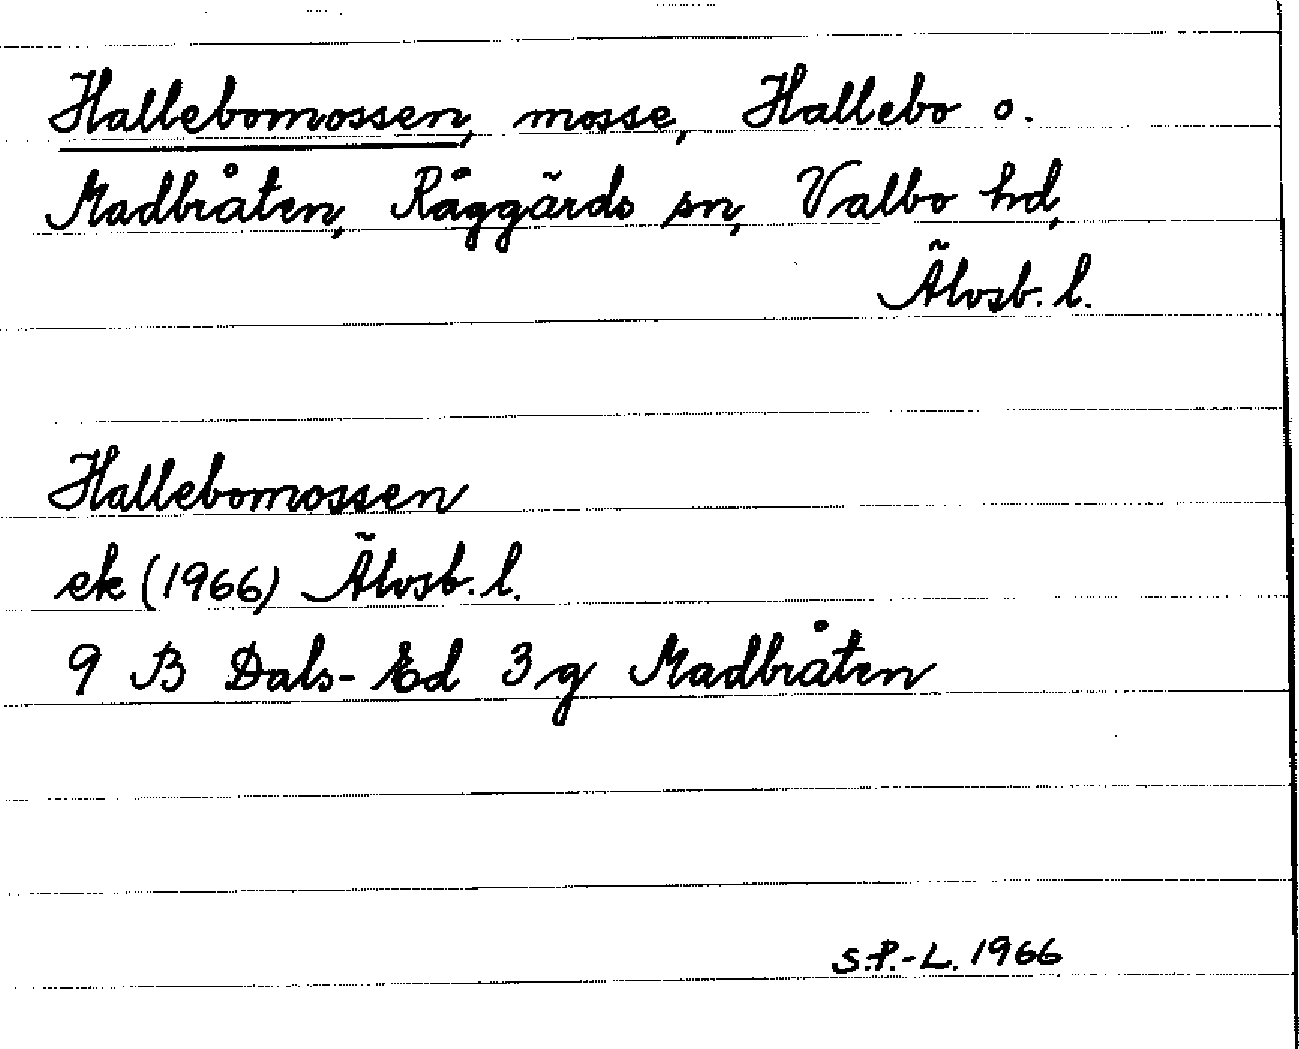 Hallebomossen, mosse, Hallebo o.
Madbråten, Råggärds sn, Valbo hd,
Älvsb. l.
Hallebomossen
ek (1966) Älvsb. l.
9 B Dals-Ed 3 g Madbråten
S.P.-L. 1966